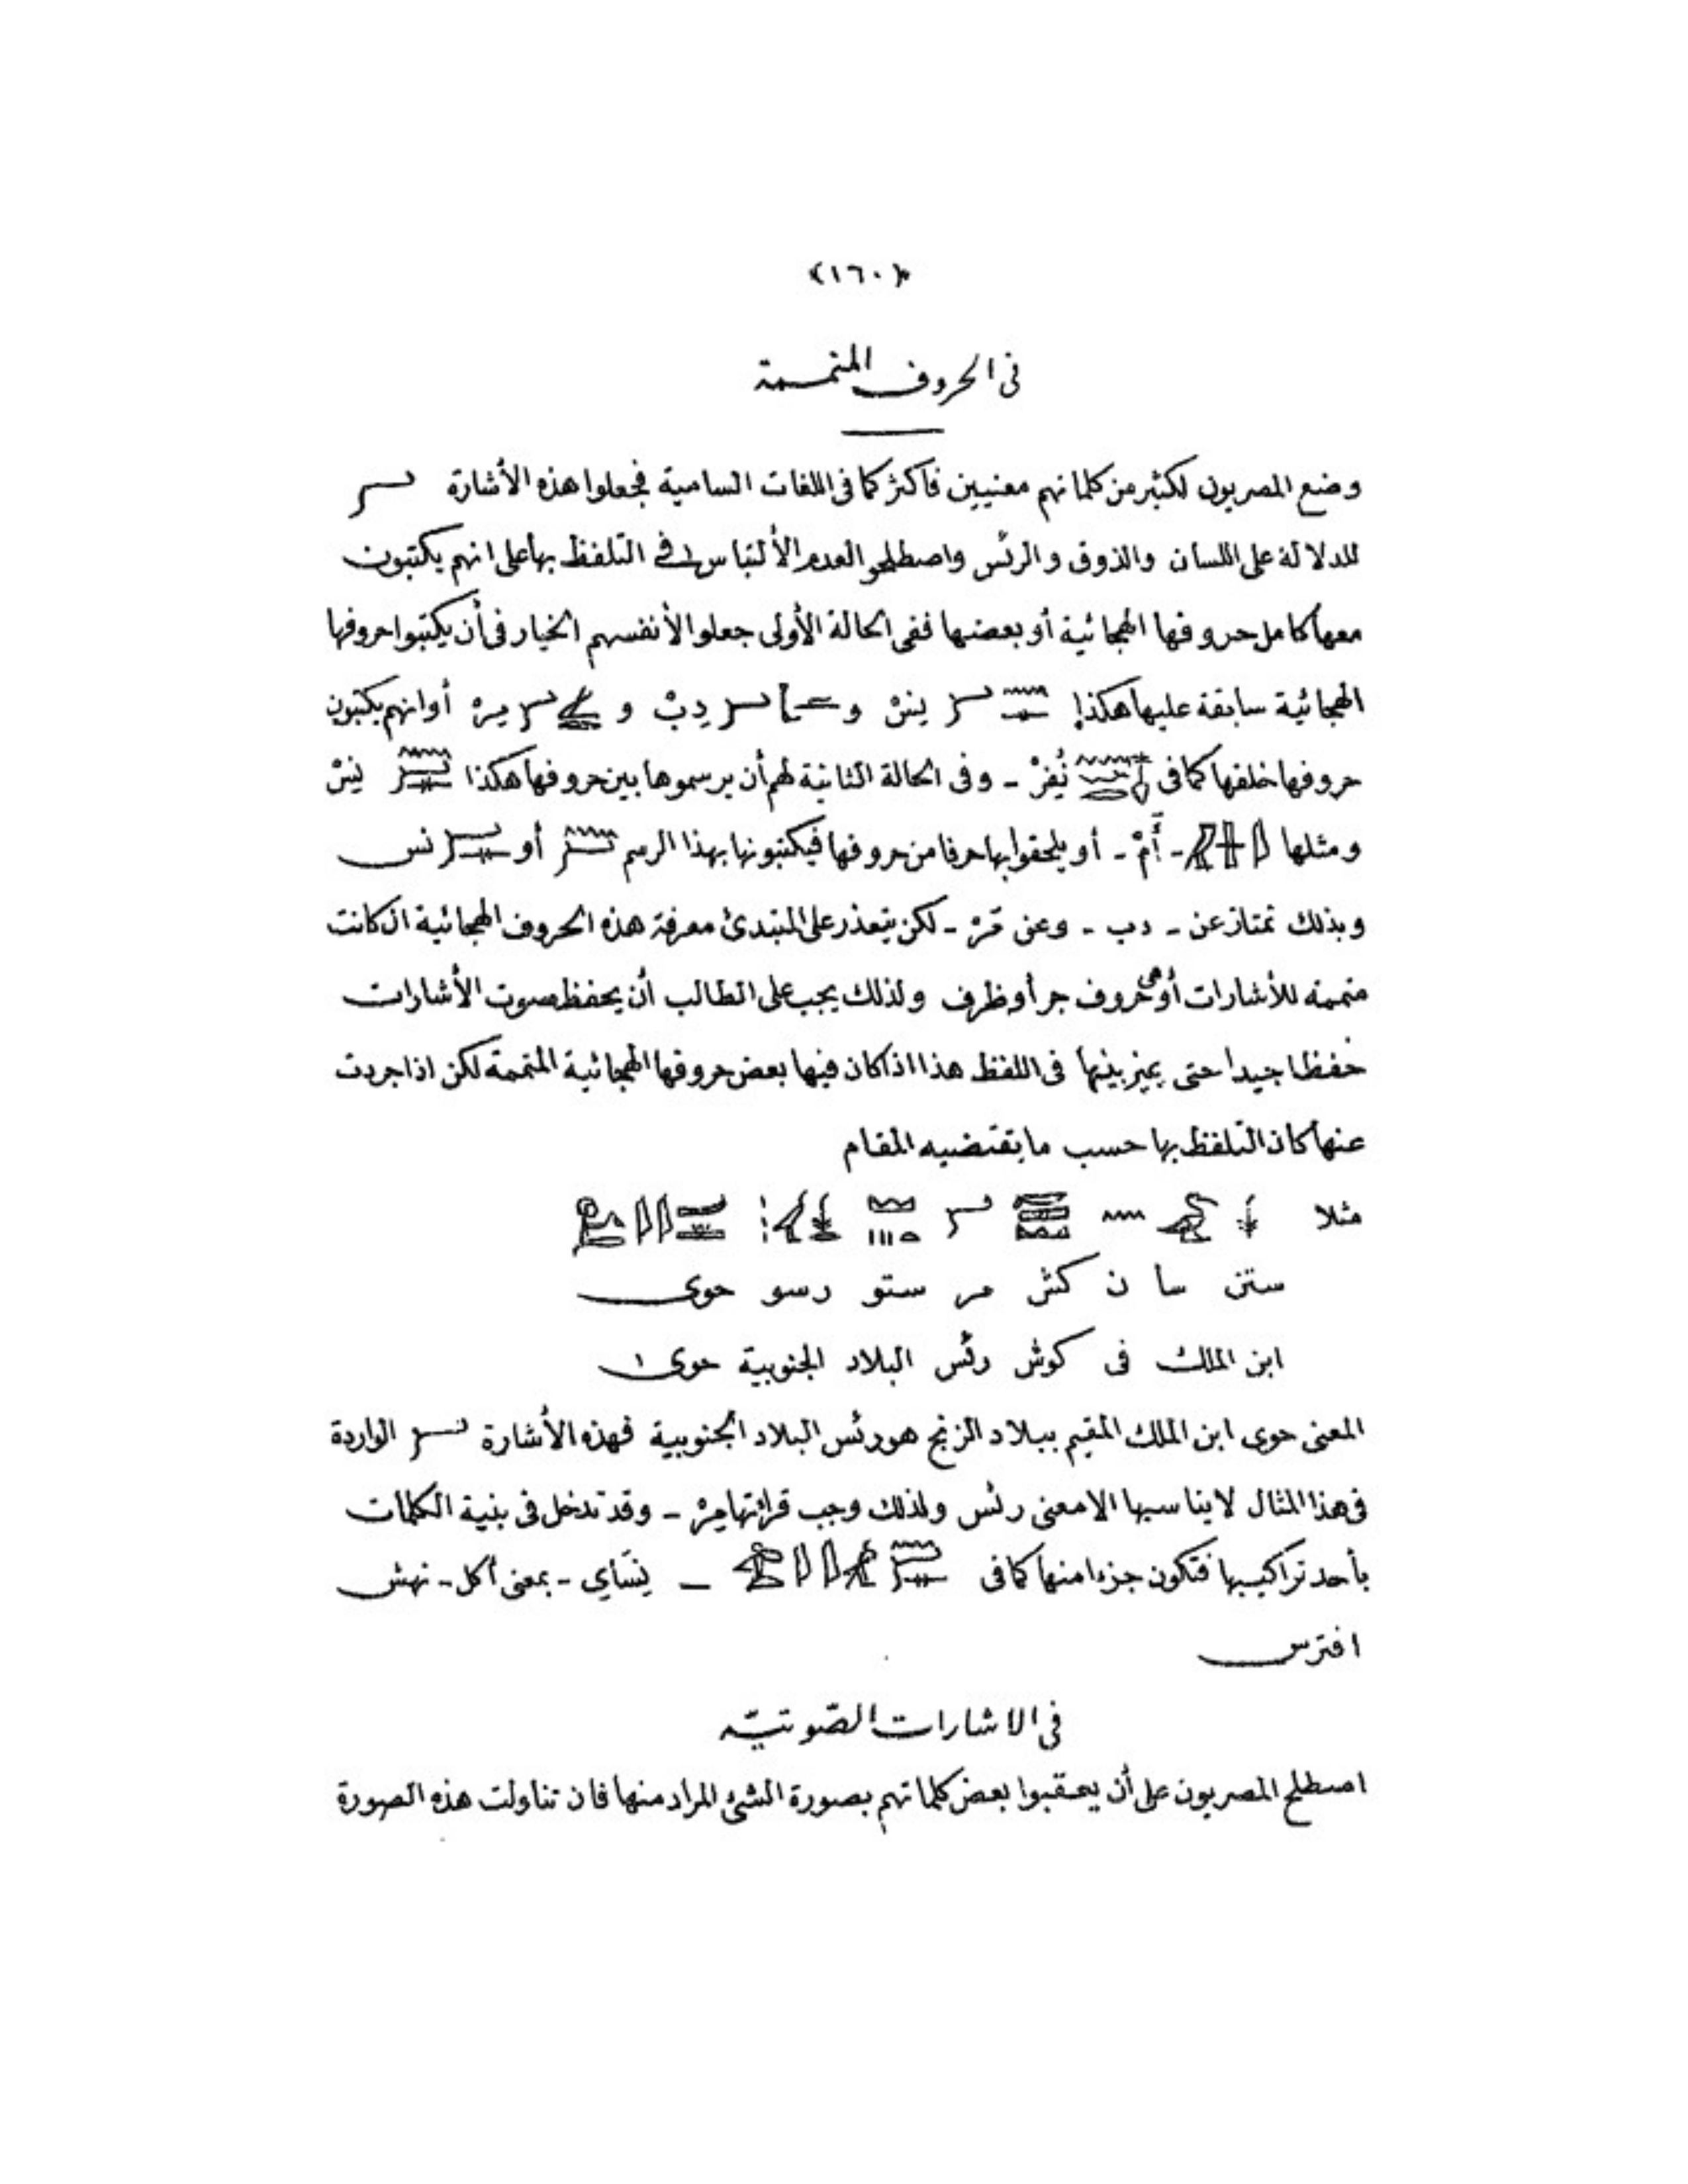 ﴿١٦٠﴾
فى الحروف المتممة
وضع المصريون لكثير من كلماتهم معنيين فاكثر كما فى اللغات السامية فجعلوا هذه الأشارة
للدلالة على اللسان والذوق والرئس واصطلحوا لعدم الألتباس فى التلفظ بها على انهم يكتبون
معها كامل حروفها الهجائية أو بعضها ففى الحالة الأولى جعلوا لأنفسهم الخيار فى أن يكتبوا حروفها
الهجائية سابقة عليها هكذا ينس و دب و أو انهم يكتبون
حروفها خلفها كما فى نفر - وفى الحالة الثانية لهم أن يرسموها بين حروفها هكذا
ومثلها - أم - أو يلحقوا بها حرفا من حروفها فيكتبونها بهذا الرسم أو نس
وبذلك تمتاز عن - دب - وعن - لكن يتعذر على المبتدئ معرفة هذه الحروف الهجائية ان كانت
متممة للأشارات أو هى حروف جر أو ظرف ولذلك يجب على الطالب أن يحفظ صوت الأشارات
حفظا جيدا حتى يميز بينها فى اللفظ هذا اذا كان فيها بعض حروفها الهجائية المتممة لكن اذا جردت
عنها كان التلفظ بها حسب ما يقتضيه المقام
مثلا
ستن سا ن كش مر ستو رسو حوى
ابن الملك فى كوش رئس البلاد الجنوبية حوى ١
المعنى حوى ابن الملك المقيم ببلاد الزنج هو رئس البلاد الجنوبية فهذه الأشارة الواردة
فى هذا المثال لا يناسبها الا معنى رئس ولذلك وجب قرائتها مر - وقد تدخل فى بنية الكلمات
بأحد تراكيبها فتكون جزءا منها كما فى - ينساي - بمعنى أكل - نهش
افترس
فى الاشارات الصّوتيّه
اصطلح المصريون على أن يعقبوا بعض كلماتهم بصورة الشئ المراد منها فان تناولت هذه الصورة